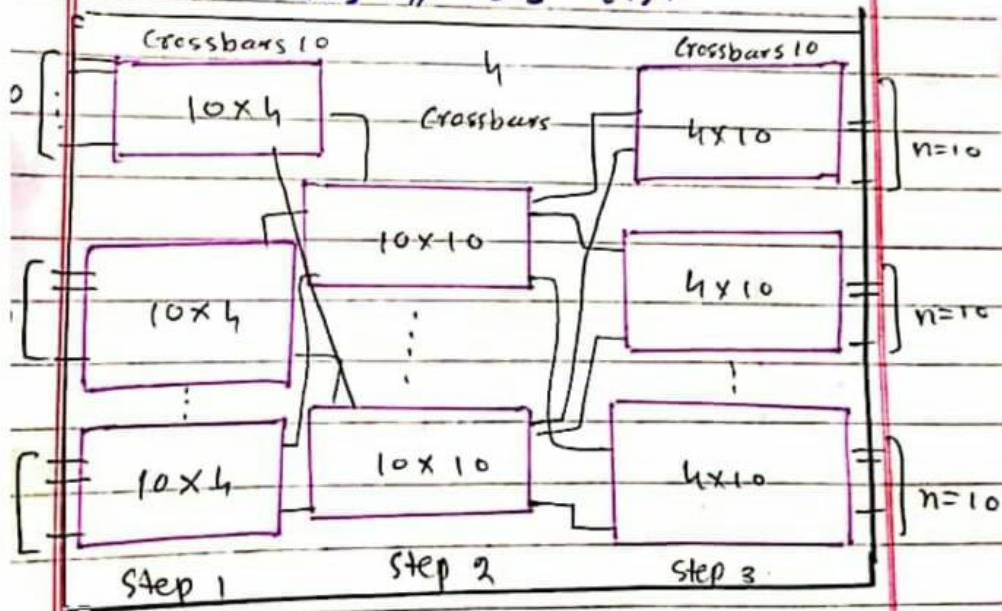 Crossbars 10
4
Crossbars 10
10 × 4
Crossbars
4 × 10
n=10
10 × 10
4 × 10
n=10
10 × 4
10 × 4
10 × 10
4 × 10
n=10
Step 1
Step 2
Step 3